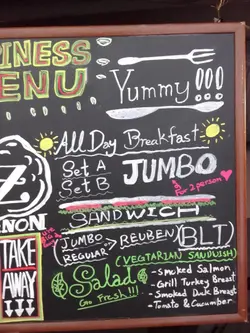 INESS
ENU
Yummy!!!
All Day Breakfast
Set A
Set B
JUMBO
For 2 person
SANDWICH
Z
NON
JUMBO
REGULAR
REUBEN
(BLT)
(VEGTARIAN SANDWISH)
TAKE
AWAY
Salad
Go Fresh!!!
- Smoked Salmon
- Grill Turkey Breast
- Smoked Duck Breast
- Tomato & Cucumber